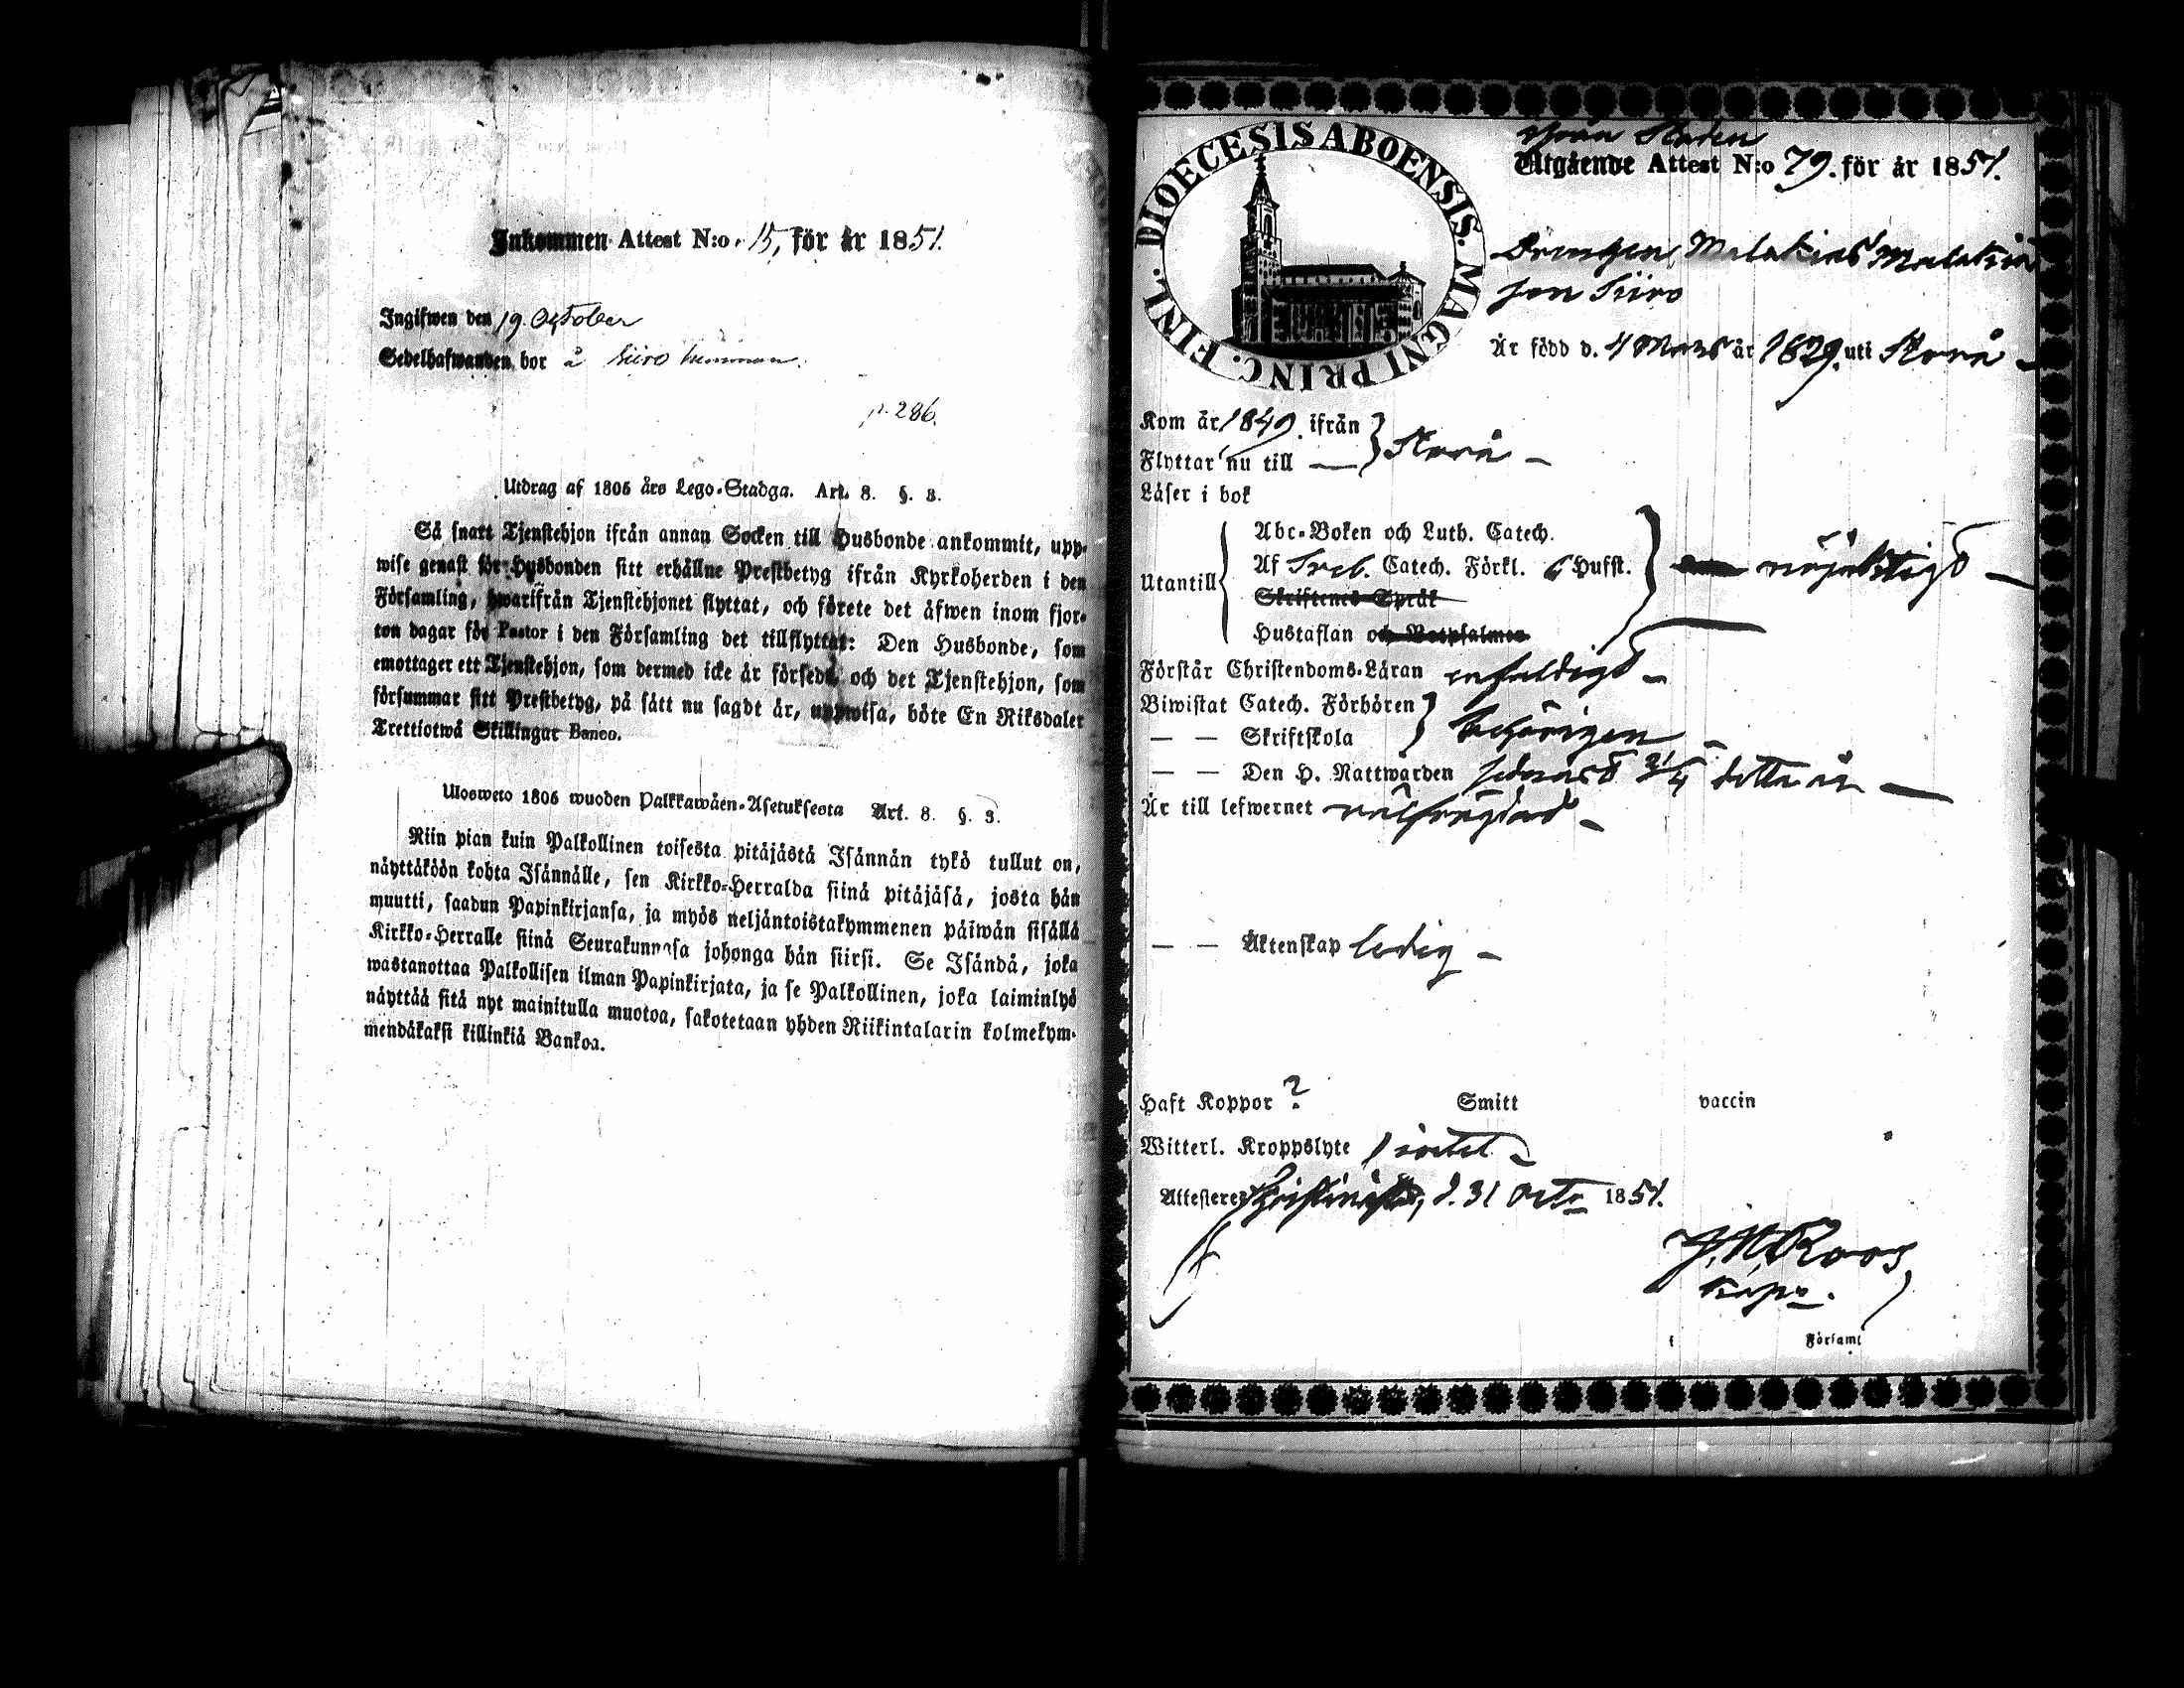 Inkommen Attest N:o 15, för år 1851.
Ingifwen den 19. October
Sedelhafwanden bor å Siiro hemman.
p. 286.
Utdrag af 1805 års Lego-Stadga. Art. 8. §. 3.
Så snart Tjenstehjon ifrån annan Socken till Husbonde ankommit, upp-
wise genast för Husbonden sitt erhållne Prestbetyg ifrån Kyrkoherden i den
Församling, hwarifrån Tjenstehjonet flyttat, och förete det äfwen inom fjor-
ton dagar för Pastor i den Församling det tillflyttat: Den Husbonde, som
emottager ett Tjenstehjon, som dermed icke är försedt, och det Tjenstehjon, som
försummar sitt Prestbetyg, på sätt nu sagdt är, uppwisa, böte En Riksdaler
Trettiotwå Skillingar Banco.
Ulosweto 1805 wuoden Palkkawäen-Asetuksesta Art. 8. §. 3.
Niin pian kuin Palkollinen toisesta pitäjästä Isännän tykö tullut on,
näyttäköön kohta Isännälle, sen Kirkko-Herralda siinä pitäjäsä, josta hän
muutti, saadun Papinkirjansa, ja myös neljäntoistakymmenen päiwän sisällä
Kirkko-Herralle siinä Seurakunnasa johonga hän siirsi. Se Isändä, joka
wastanottaa Palkollisen ilman Papinkirjata, ja se Palkollinen, joka laiminlyö
näyttää sitä nyt mainitulla muotoa, sakotetaan yhden Riikintalarin kolmekym-
mendäkaksi killinkiä Bankoa.
DIOECESIS ABOENSIS. MAGNI PRINC. FINL.
från Staden
Utgående Attest N:o 79. för år 1851.
Drengen Malakias Malakia
son Siiro
Är född d. 4 Mars år 1829. uti Storå
Kom år 1849. ifrån
Flyttar nu till — } Storå
Läser i bok
Abc-Boken och Luth. Catech.
Utantill Af Sveb. Catech. Förkl. 6 Hufst. nöjaktigt
Skriftenes Språk
Hustaflan och Botpsalmer
Förstår Christendoms-Läran enfaldigt
Biwistat Catech. Förhören
— — Skriftskola } behörigen
— — Den H. Nattwarden sednast 3/4 detta år
Är till lefwernet välfrägdad
— — Äktenskap ledig
Haft Koppor ? Smitt vaccin
Witterl. Kroppslyte
Attesterer Christinestad, d. 31 Octr 1851.
J. W. Roos
i Församl